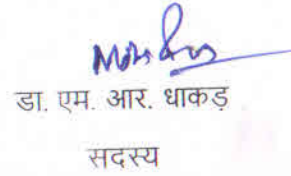 डा. एम. आर. धाकड़
सदस्य